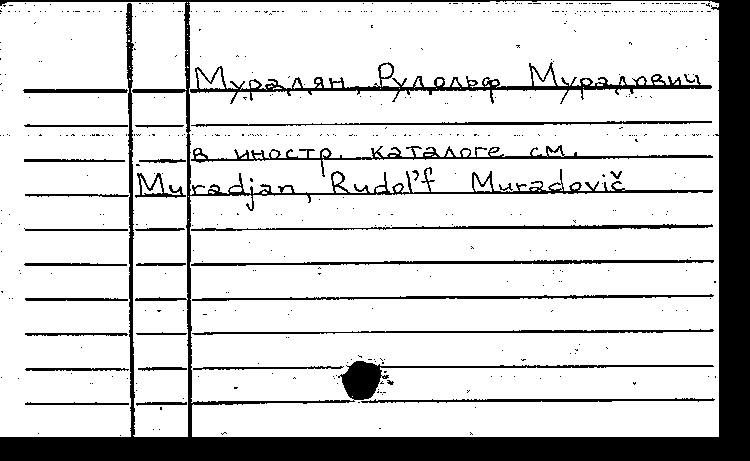 Мурадян, Рудольф Мурадович
в иностр. каталоге см.
Muradjan, Rudol'f Muradovič